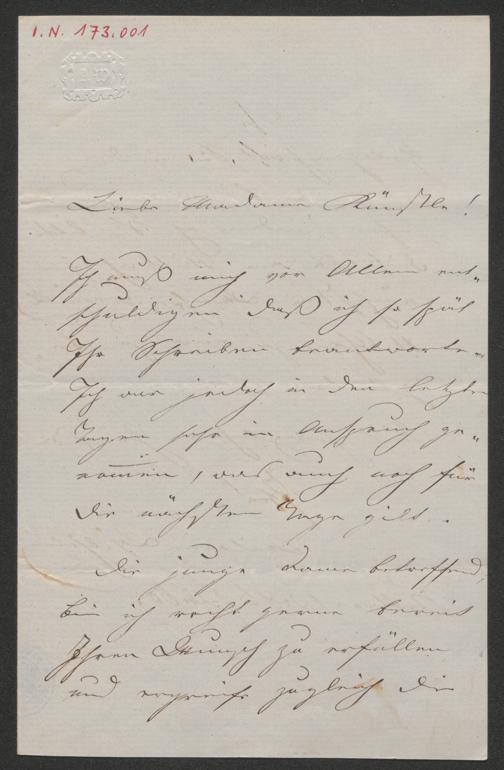 I.N. 173.001
Liebe Madame Künstle!
Ich muß mich vor Allem ent-
schuldigen daß ich so spät
Ihr Schreiben beantworte-
Ich war jedoch in den letzten
Tagen sehr in Anspruch ge-
nommen, was auch noch für
die nächsten Tage gilt.
Die junge Dame betreffend,
bin ich recht gerne bereit
Ihren Wunsch zu erfüllen
und ergreife zugleich die